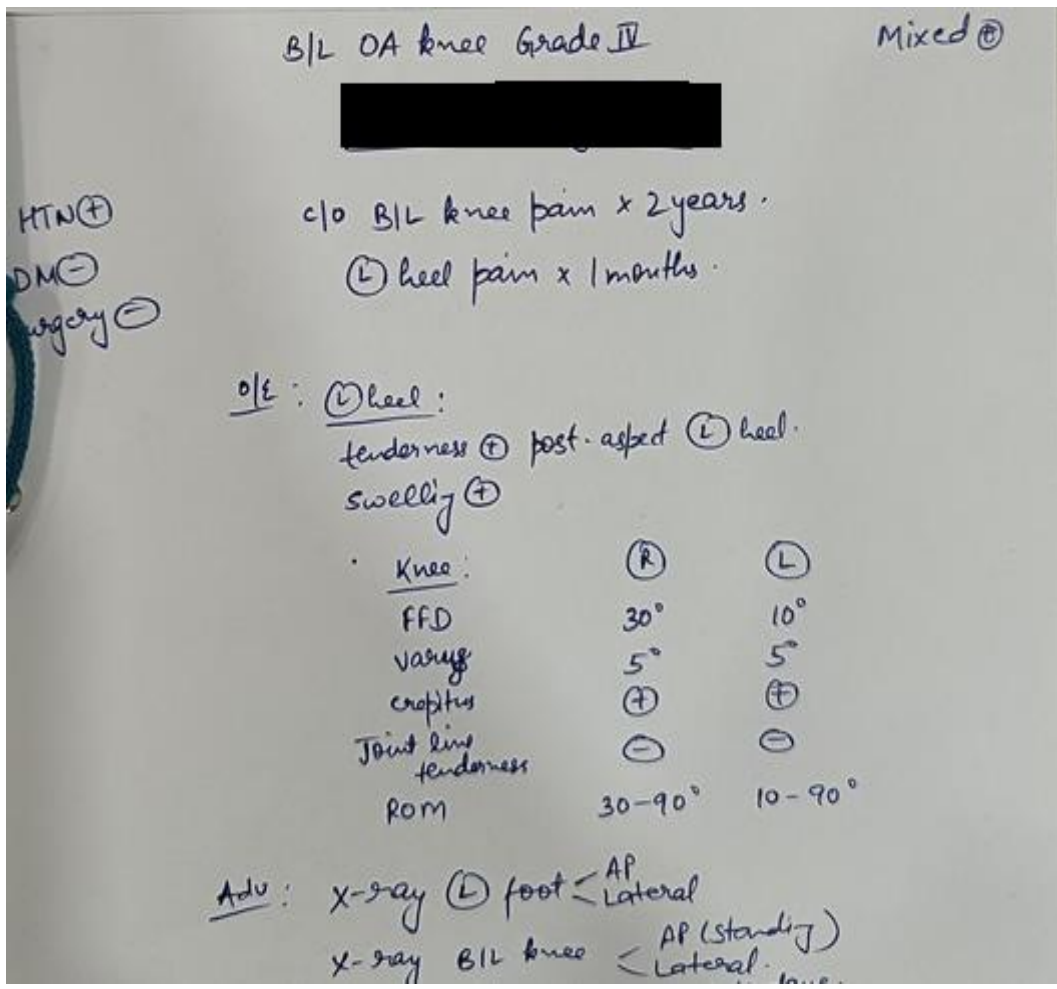 B/L OA knee Grade IV Mixed ⊕
HTN ⊕
DM ⊖
urgery ⊖
c/o B/L knee pain x 2 years.
Ⓛ heel pain x 1 months.
O/E : Ⓛ heel :
tenderness ⊕ post. aspect Ⓛ heel.
swellig ⊕
Knee : Ⓡ Ⓛ
FFD 30° 10°
varus 5° 5°
crepitus ⊕ ⊕
Joint line
tenderness ⊖ ⊖
ROM 30-90° 10-90°
Adv : X-ray Ⓛ foot < AP
Lateral
X-ray B/L knee < AP (standig)
Lateral.